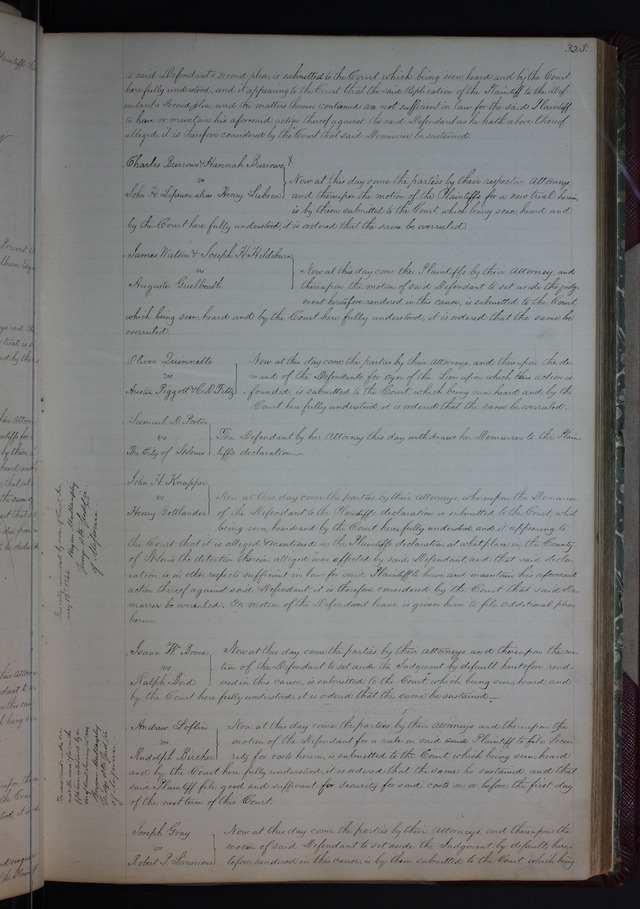 325
to said Defendant's second plea, is submitted to the Court, which being seen, heard and by the Court
here fully understood, and it appearing to the Court that the said Replication of the Plaintiff to the Def-
endants Second plea and the matters therein contained are not sufficient in law for the said Plaintiff
to have or maintain his aforesaid action thereof against the said Defendant as he hath above thereof
alleged it is therefore considered by the Court that said Demurrer be sustained.
Charles Burrows & Hannah Burrows
vs
John H. Lipsum alias Henry
Now at this day come the parties by their respective Attorneys
and thereupon the motion of the Plaintiffs for a new trial herein
is by them submitted to the Court which being seen, heard and
by the Court here fully understood, it is ordered that the same be overruled.
James Watson & Joseph H.
vs
Auguste
Now at this day come the Plaintiffs by their Attorney, and
thereupon the motion of said Defendant to set aside the judg-
ment heretofore rendered in this cause, is submitted to the Court,
which being seen, heard and by the Court here fully understood, it is ordered that the same be
overruled.
Oliver Quinnette
vs
Austin Piggott &
Now at this day come the parties by their Attorneys and thereupon the de-
mands of the Defendants for oyer of the Lien upon which this action is
founded is submitted to the Court which being seen heard and by the
Court here fully understood it is ordered that the same be overruled.
Samuel D. Porter
vs
The City of St Louis
The Defendant by her Attorney this day withdraws her Demurrer to the Plain-
tiffs declaration
John H. Knapper
vs
Henry Gottlander
Now at this day come the parties by their attorneys, whereupon the Demurrer
of the Defendant to the Plaintiffs declaration is submitted to the Court, which
being seen, heard and by the Court here fully understood and it appearing to
the Court that it is alleged & mentioned in the Plaintiffs declaration at what place in the County
of St Louis the detention therein alleged was effected by said Defendant and that said decla-
ration is in other respects sufficient in law for said Plaintiff to have and maintain his aforesaid
action thereof against said Defendant it is therefore considered by the Court that said De-
murrer be overruled. On motion of the Defendant leave is given him to file additional pleas
herein.
Isaac W. Boone
vs
Ralph
Now at this day come the parties by their attorneys and thereupon the mo-
tion of the Defendant to set aside the Judgment by default heretofore rend-
ered in this cause, is submitted to the Court, which being seen, heard and
by the Court here fully understood, it is ordered that the same be sustained.
Andrew Loflin
vs
Rudolph Bircher
Now at this day come the parties by their Attorneys and thereupon the
motion of the Defendant for a rule on said Plaintiff to file Secu-
rity for costs herein, is submitted to the Court which being seen, heard
and by the Court here fully understood, it is ordered that the same be sustained, and that
said Plaintiff file good and sufficient security for said costs on or before the first day
of the next term of this Court.
Joseph Gray
vs
Robert P. Simmons
Now at this day come the parties by their attorneys, and thereupon the
motion of said Defendant to set aside the Judgment by default here-
tofore rendered in this cause is by them submitted to the Court, which being